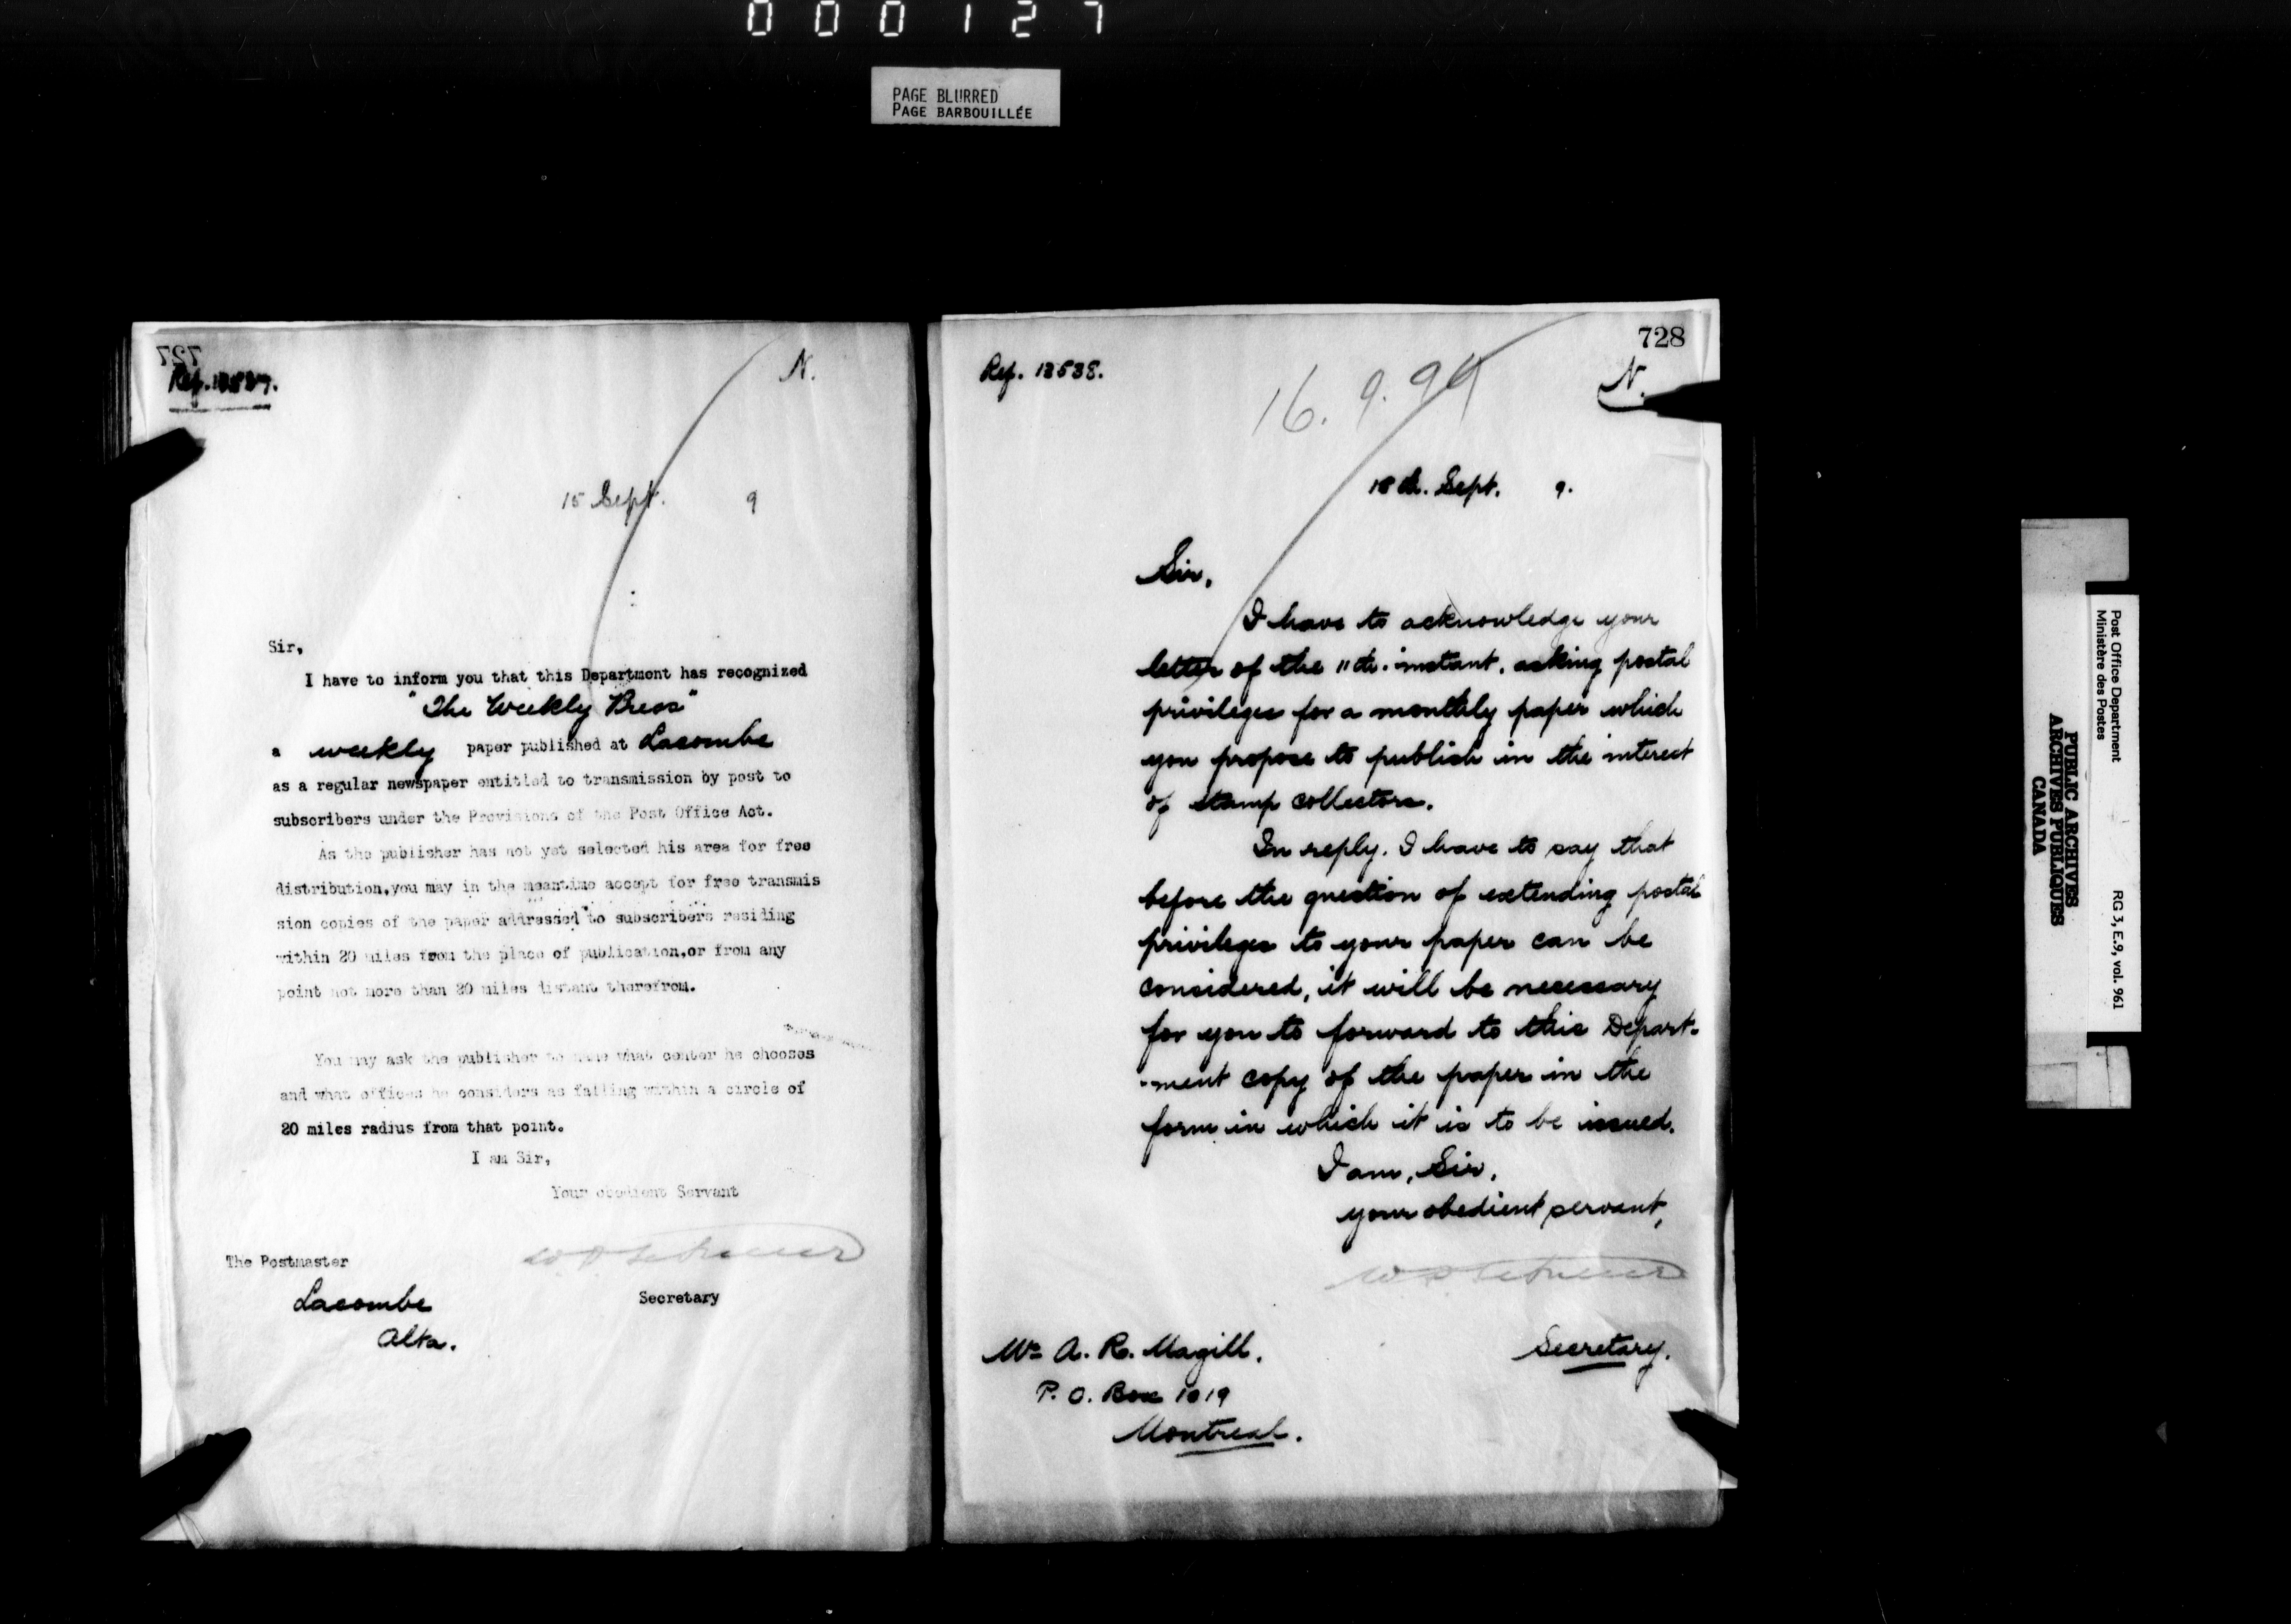 000127
PAGE BLURRED
PAGE BARBOUILLÉE
727
Ref. 13537.
N.
15 Sept. 9
Sir,
I have to inform you that this Department has recognized
"The Weekly Press"
a weekly paper published at Lacombe
as a regular newspaper entitled to transmission by post to
subscribers under the Provisions of the Post Office Act.
As the publisher has not yet selected his area for free
distribution, you may in the meantime accept for free transmis
sion copies of the paper addressed to subscribers residing
within 20 miles from the place of publication, or from any
point not more than 20 miles distant therefrom.
You may ask the publisher to name what center he chooses
and what offices he considers as falling within a circle of
20 miles radius from that point.
I am Sir,
Your obedient Servant
The Postmaster
Secretary
Lacombe
Alta.
728
Ref. 13538.
N.
16. 9. 99
Sept. 9.
Sir,
I have to acknowledge your
letter of the 11th. instant, asking postal
privileges for a monthly paper which
you propose to publish in the interest
of stamp collectors.
In reply, I have to say that
before the question of extending postal
privileges to your paper can be
considered, it will be necessary
for you to forward to this Depart-
-ment copy of the paper in the
form in which it is to be issued.
I am, Sir,
your obedient servant,
Secretary.
Mr A. R. Magill,
P. O. Box 1019
Montreal.
Post Office Department
Ministère des Postes
RG 3, E.9, vol. 961
PUBLIC ARCHIVES
ARCHIVES PUBLIQUES
CANADA